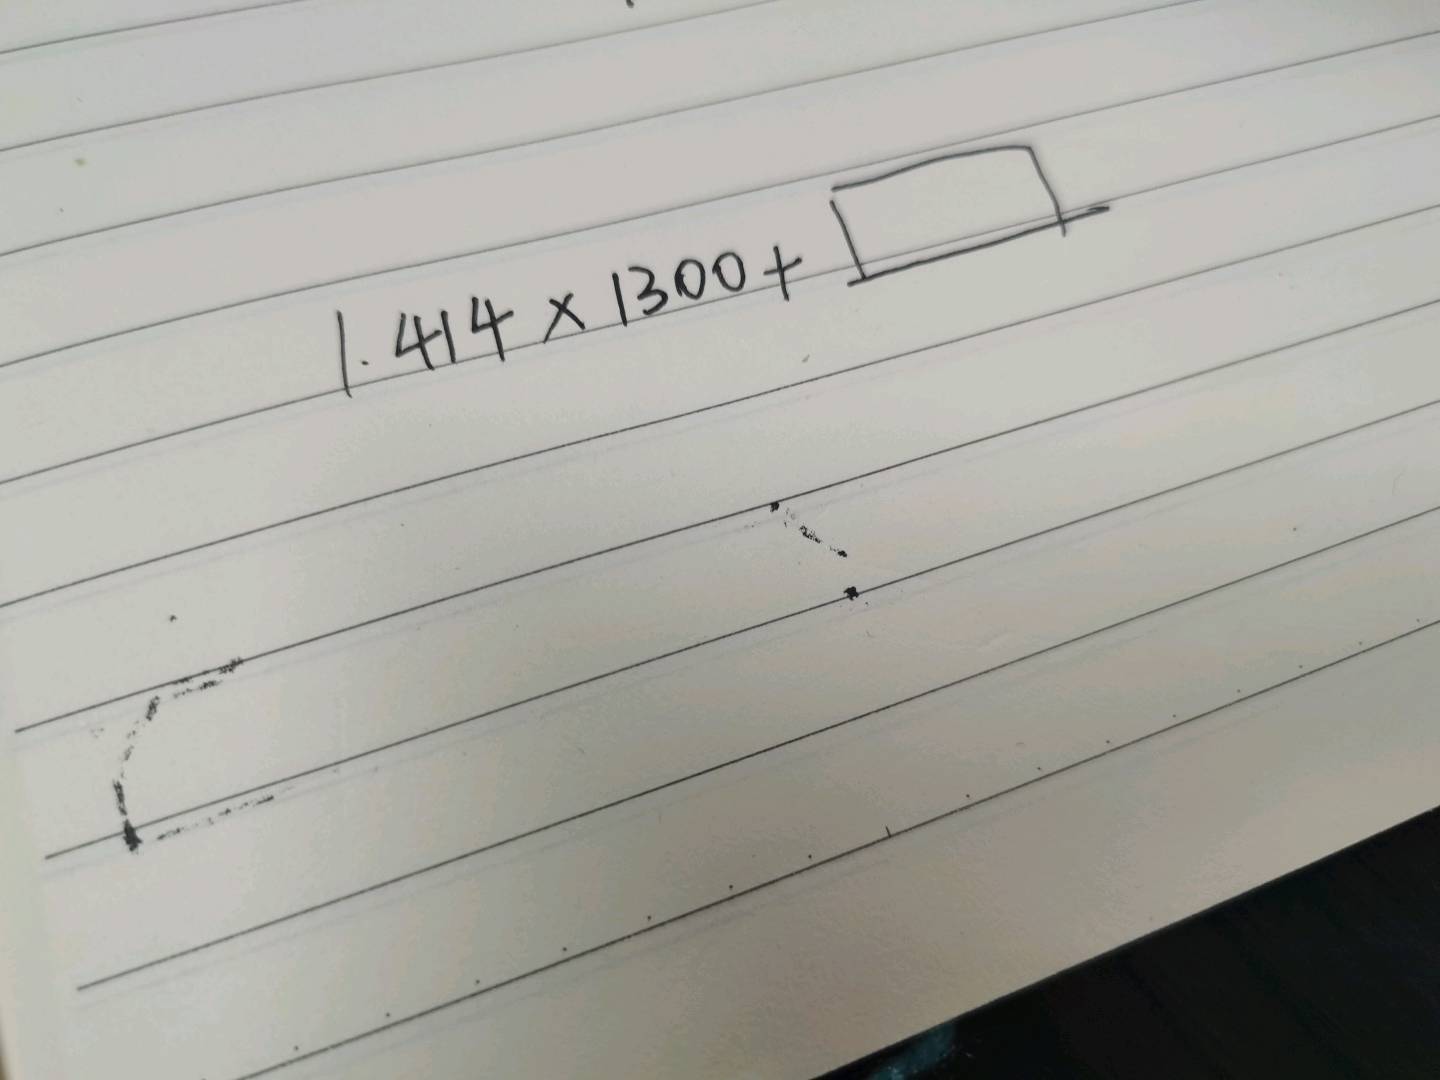 1.414 × 1300 +